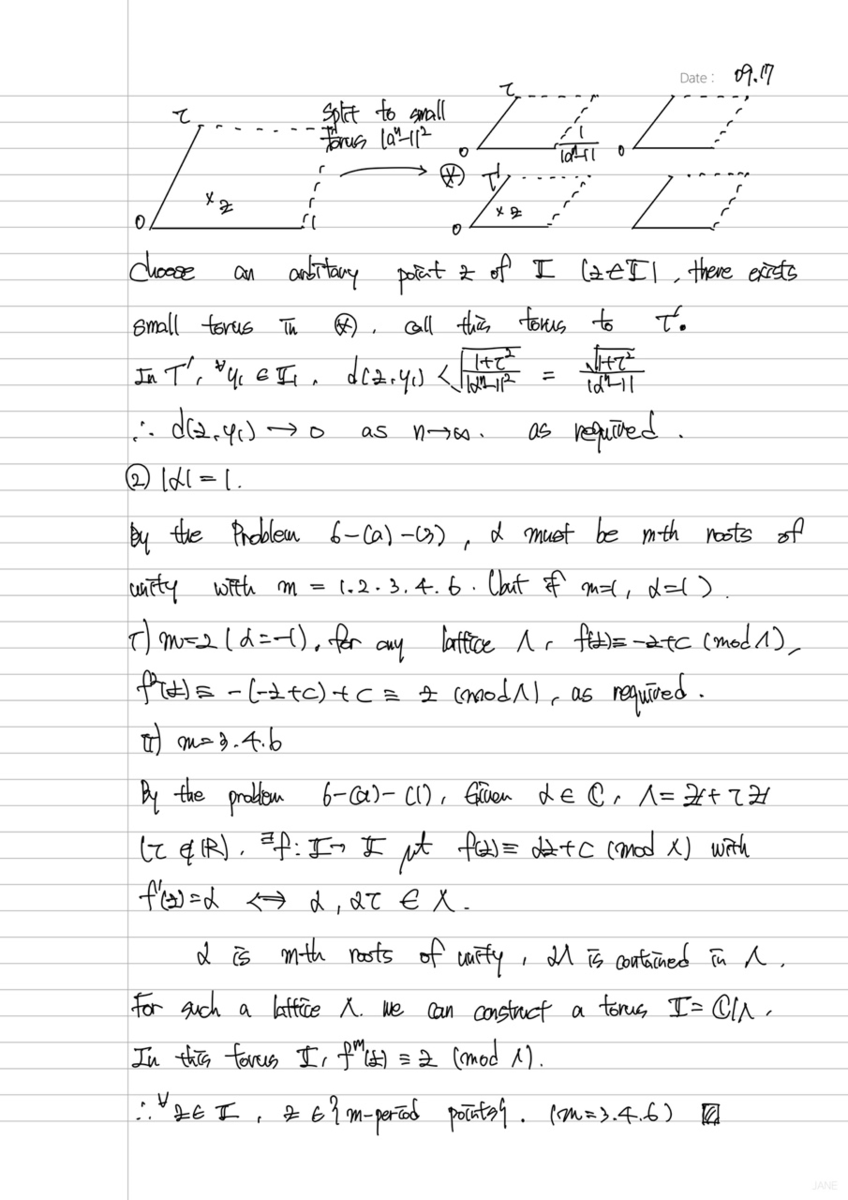 Date : 09.17
τ
0
x z
1
Split to small
torus |αⁿ-1|²
⊛
τ
0
1/|αⁿ-1|
0
T'
x z
0
Choose an arbitary point z of 𝕋 (z∈𝕋), there exists
small torus in ⊛. call this torus to T'.
In T', ∀y₁ ∈ 𝕋₁, d(z,y₁) < √((1+τ²)/|αⁿ-1|²) = √(1+τ²)/|αⁿ-1|
∴ d(z,y₁) → 0 as n→∞. as required.
② |α| = 1.
By the Problem 6-(a)-(3), α must be m-th roots of
unity with m = 1.2.3.4.6. (but if m=1, α=1).
i) m=2 (α=-1), for any lattice Λ, f(z)≡-z+c (modΛ),
f²(z) ≡ -(-z+c)+c ≡ z (modΛ), as required.
ii) m=3.4.6
By the problem 6-(a)-(1), Given α ∈ ℂ, Λ=ℤ+τℤ
(τ ∉ ℝ), ∃f: 𝕋→ 𝕋 st f(z)≡ αz+c (mod Λ) with
f'(z)=α ⟺ α, ατ ∈ Λ.
α is m-th roots of unity, αΛ is contained in Λ.
For such a lattice Λ. we can construct a torus 𝕋=ℂ/Λ.
In this torus 𝕋, fᵐ(z) ≡ z (mod Λ).
∴ ∀z∈ 𝕋, z ∈ {m-period points}. (m=3.4.6)
JANE